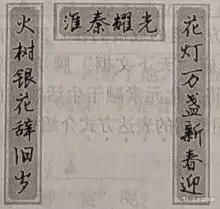 光耀秦淮
花灯万盏新春迎
火树银花辞旧岁